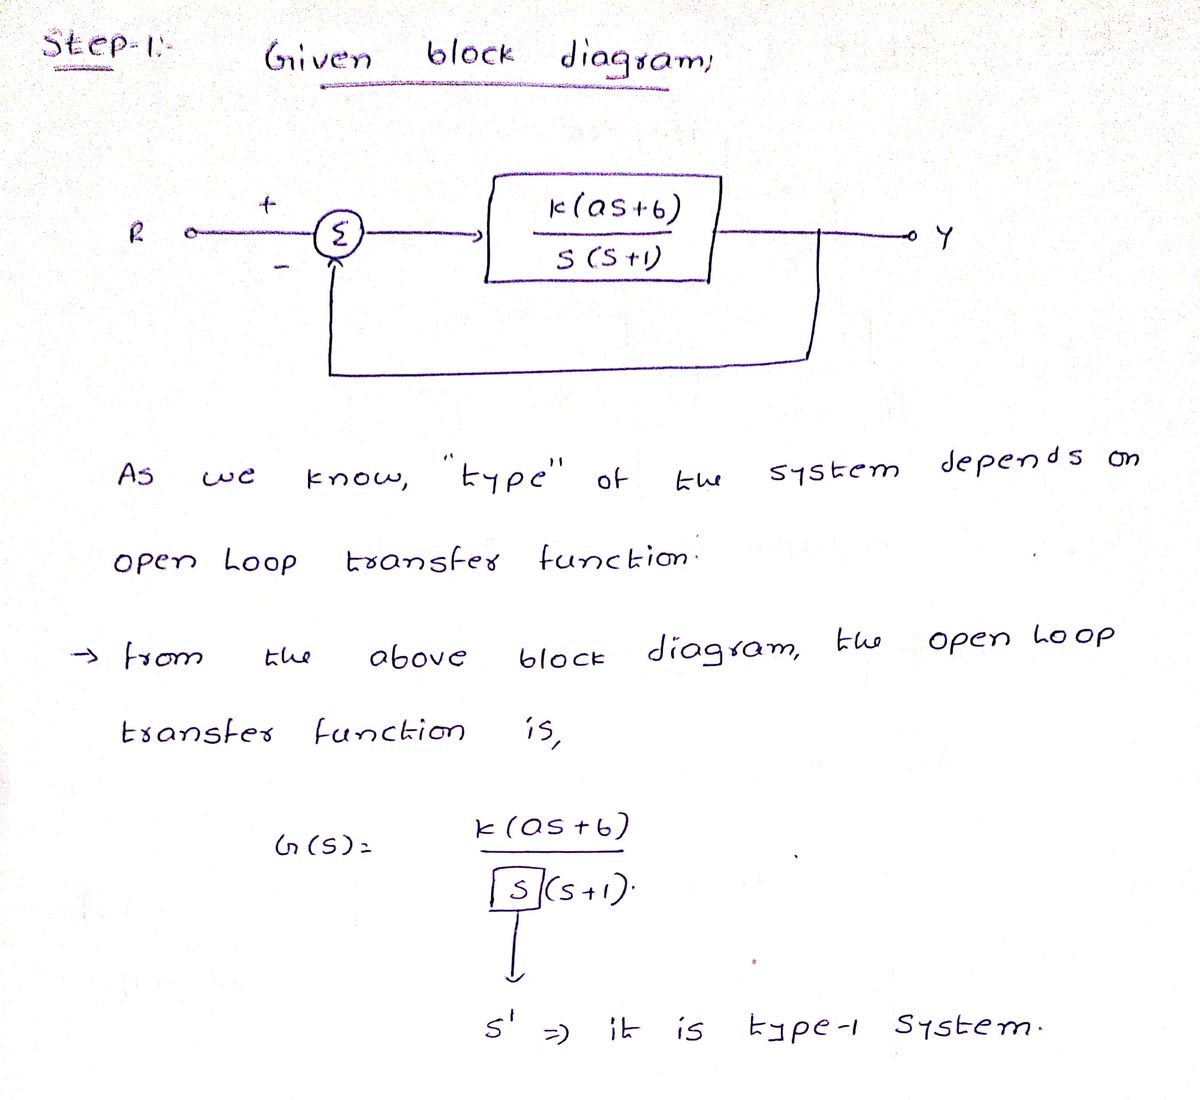 Step-1:- Given block diagram;
+
R Σ K(as+b) Y
- s(s+1)
As we know, "type" of the system depends on
open Loop transfer function.
→ from the above block diagram, the open Loop
transfer function is,
G(s)= K(as+b)
s(s+1).
s' ⇒ it is type-1 system.